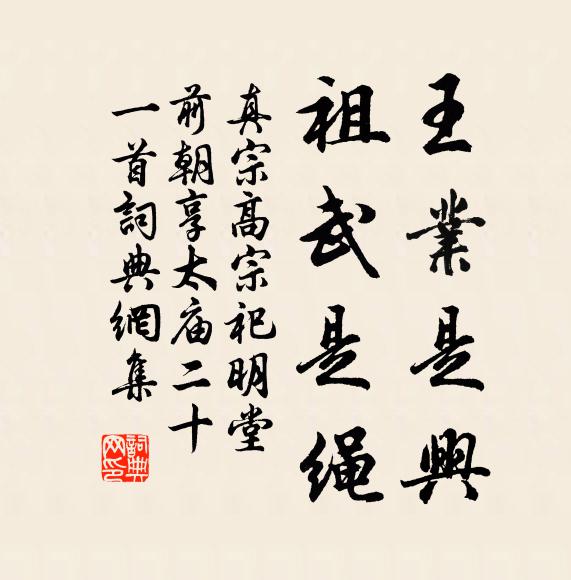 王業是興
祖武是绳
真宗高宗祀明堂
前朝享太庙二十
一首詞典網集
詞典
网印